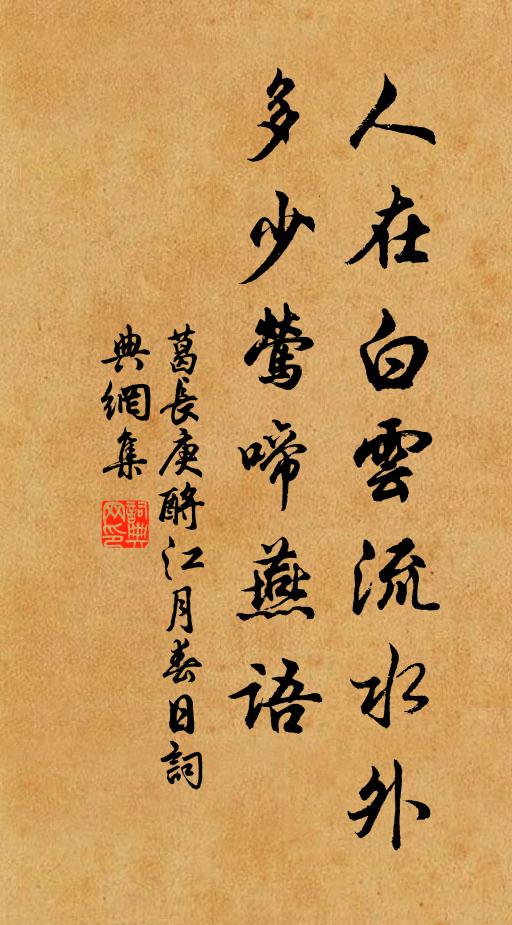 人在白雲流水外
多少鶯啼燕語
葛長庚酹江月春日詞
典網集
詞典網印